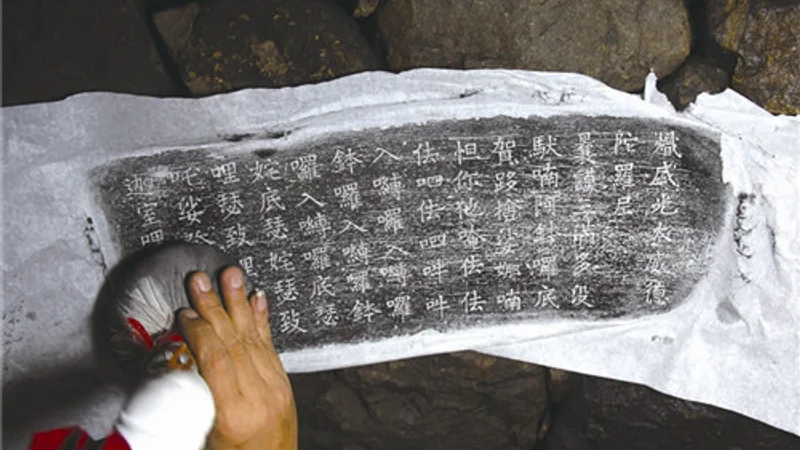 熾盛光大威德
陀羅尼
曩謨三滿多沒
馱喃阿鉢囉底
賀路捨娑娜喃
怛你他唵佉佉
佉呬佉呬吽吽
入嚩囉入嚩囉
鉢囉入嚩囉鉢
囉入嚩囉底瑟
姹底瑟姹瑟致
哩瑟致哩
吒娑
迦室哩